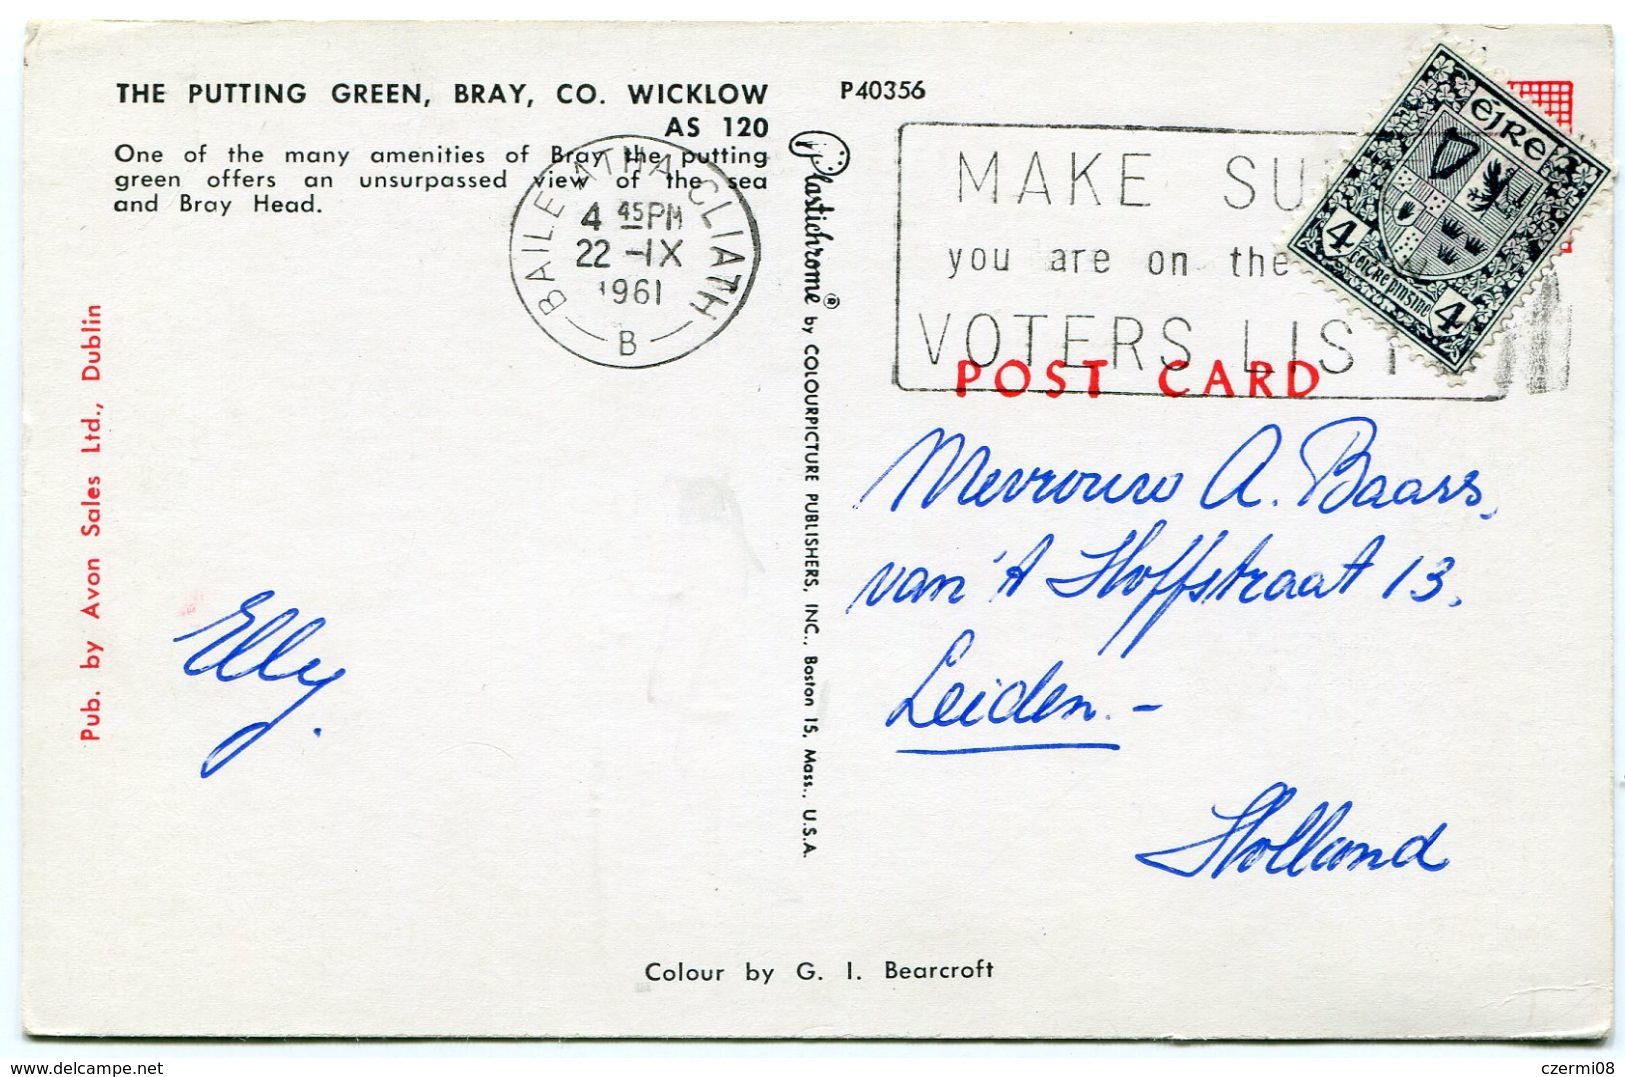 THE PUTTING GREEN, BRAY, CO. WICKLOW
AS 120
One of the many amenities of Bray the putting
green offers an unsurpassed view of the sea
and Bray Head.
P40356
BAILE ATHA CLIATH
4 45PM
22 -IX
1961
B
MAKE SU
you are on the
VOTERS LIST
éire
4
ceitre pinsine
4
POST CARD
Pub. by Avon Sales Ltd., Dublin
Plastichrome ® by COLOURPICTURE PUBLISHERS, INC., Boston 15, Mass., U.S.A.
Elly.
Mevrouw A. Baars,
van 't Hoffstraat 13.
Leiden. -
Holland
Colour by G. I. Bearcroft
www.delcampe.net
czermi08